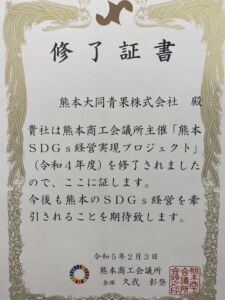 修了証書
熊本大同青果株式会社 殿
貴社は熊本商工会議所主催「熊本
SDGs経営実現プロジェクト」
（令和4年度）を修了されました
ので、ここに証します。
今後も熊本のSDGs経営を牽
引されることを期待致します。
令和5年2月3日
熊本商工会議所
会頭 久我 彰登